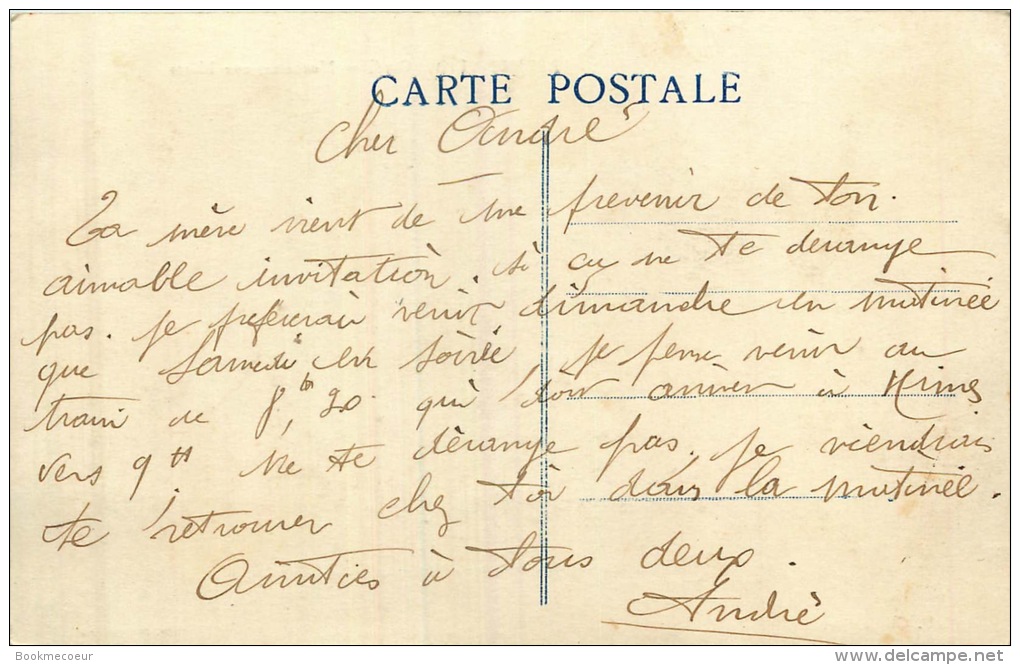 CARTE POSTALE
Cher André
Ta mère vient de me prevenir de ton
aimable invitation. si ça ne te derange
pas. je prefererai venir dimanche en matinée
que Samedi en soirée je pense venir au
train de 8h,20 qui doit arriver à Nimes
vers 9H. Ne te dérange pas. je viendrai
te retrouver chez toi dans la matinée.
Amitiés à tous deux.
André
Bookmecoeur
delcampe.net